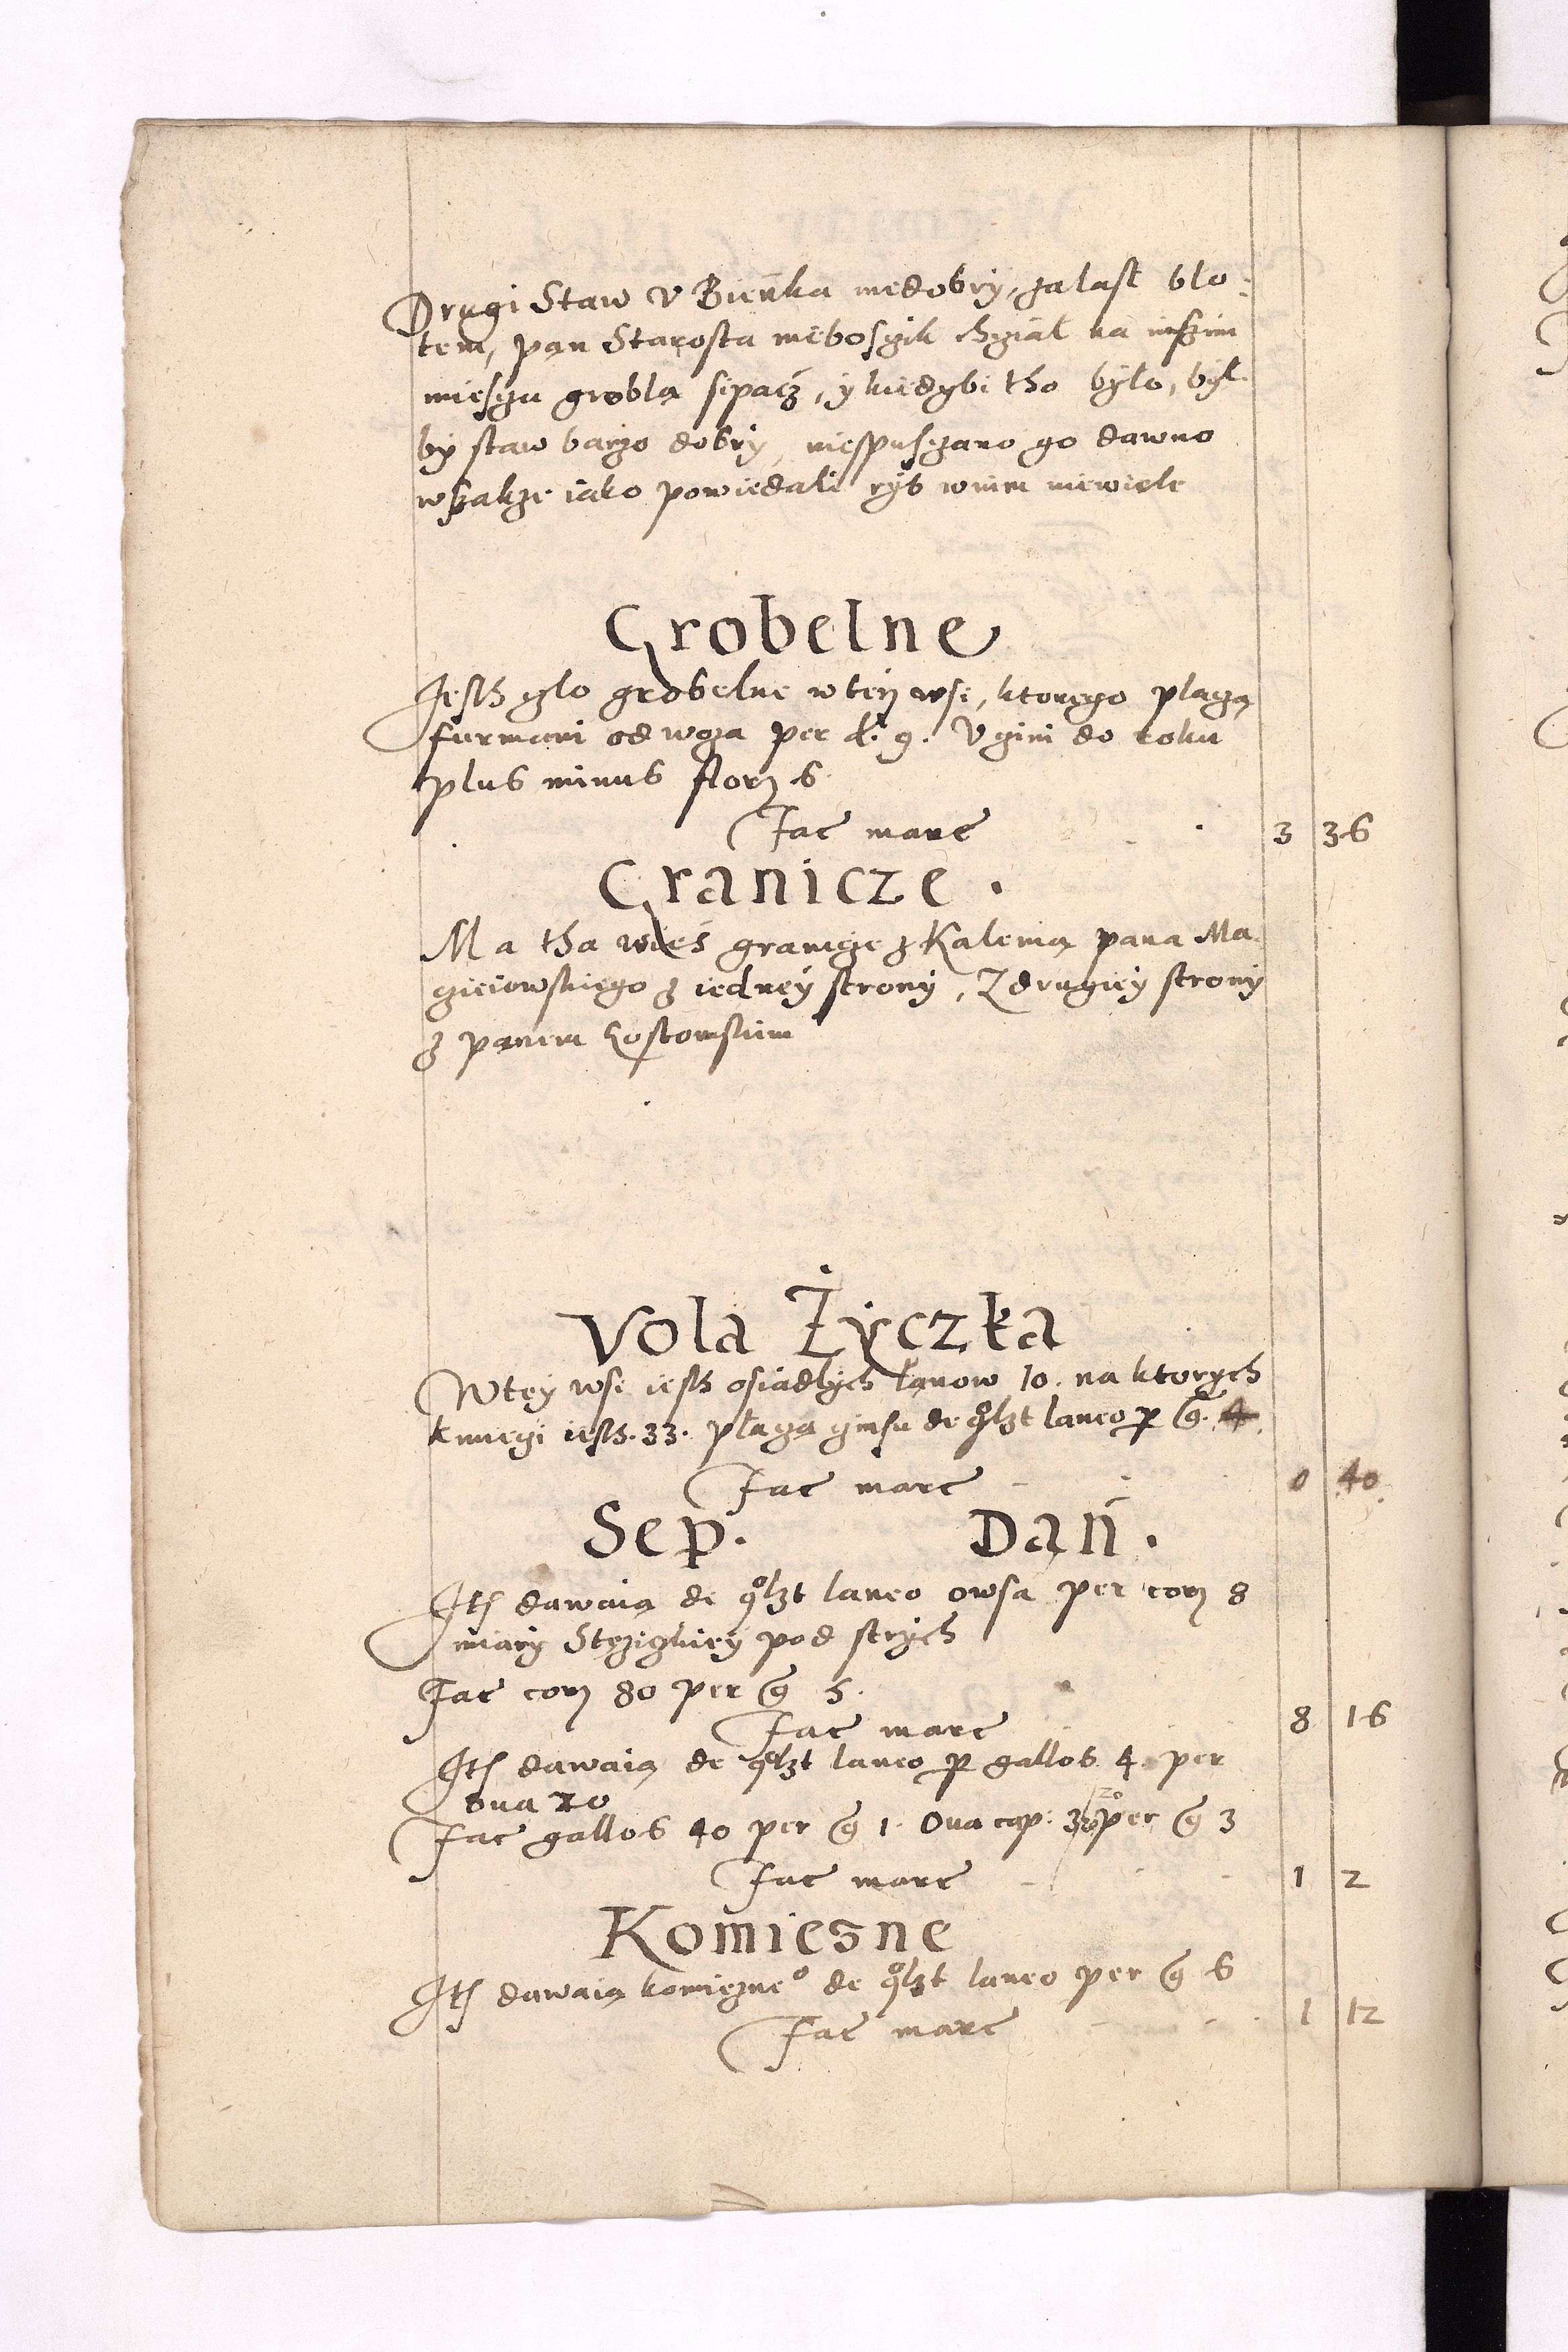 Drugi Staw v Bieńka niedobry, zalasł blo:
tem, pan Starosta nieboszik chział na inszim
mieszu groblą sipacz, y kiedybi tho było, był
by staw barzo dobry, niespuszano go dawno
wszakże iako powiedali ryb wnim niewiele
Grobelne
Jesth zlo grobelne w tey wsi, ktorego płazą
furmani od woza per d. 9. Vzini do roku
plus minus flor 6
Fac marc 3 36
Granicze.
Ma tha wieś granicze z Kalenią pana Ma
zieiowskiego z iedney strony, Z drugiey strony
z panem Kostomskim
Vola Życzka
W tey wsi iesth osiadłych łanow 10. na ktorych
kmiezi iesth 33. płazą zinsu de qolzt laneo per g. 4
Fac marc 0 40
Sep. Dań.
Itē dawaią de qolzt laneo owsa per cor 8
miary Stęziczkiey pod strych
Fac cor 80 per g 5.
Fac marc 8 16
Itē dawaią de qolzt laneo per gallos 4. per
oua 20
Fac gallos 40 per g 1. Oua cap: 3 20 per g 3
Fac marc 1 2
Komiesne
Itē dawaią komiezneo de qolzt laneo per g 6
Fac marc 1 12